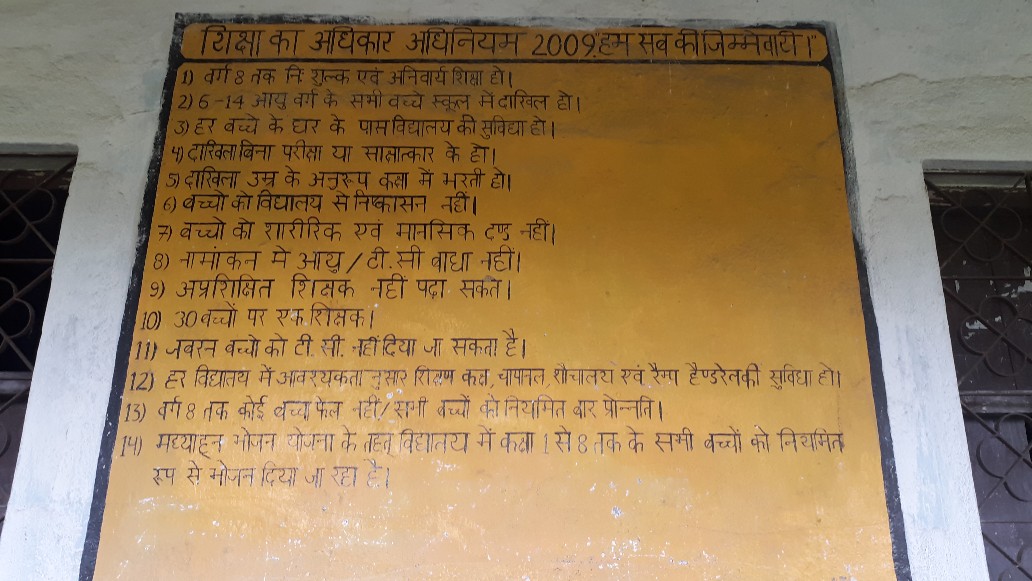 शिक्षा का अधिकार अधिनियम 2009,"हम सब की जिम्मेवारी।"
1) वर्ग 8 तक निःशुल्क एवं अनिवार्य शिक्षा हो।
2) 6-14 आयु वर्ग के सभी बच्चे स्कूल में दाखिल हो।
3) हर बच्चे के घर के पास विद्यालय की सुविधा हो।
4) दाखिला बिना परीक्षा या साक्षात्कार के हो।
5) दाखिला उम्र के अनुरूप कक्षा में भरती हो।
6) बच्चो को विद्यालय से निष्कासन नहीं।
7) बच्चो को शारीरिक एवं मानसिक दण्ड नहीं।
8) नामांकन मे आयु / टी.सी बाधा नहीं।
9) अप्रशिक्षित शिक्षक नहीं पढ़ा सकते।
10) 30 बच्चों पर एक शिक्षक।
11) जबरन बच्चो को टी. सी. नहीं दिया जा सकता है।
12) हर विद्यालय में आवश्यकतानुसार शिक्षण कक्ष, चापानल, शौचालय एवं रैम्प हैण्डरेल की सुविधा हो।
13) वर्ग 8 तक कोई बच्चा फेल नहीं / सभी बच्चों को नियमित बार प्रोन्नति।
14) मध्याह्न भोजन योजना के तहत् विद्यालय में कक्षा 1 से 8 तक के सभी बच्चों को नियमित
रूप से भोजन दिया जा रहा है।